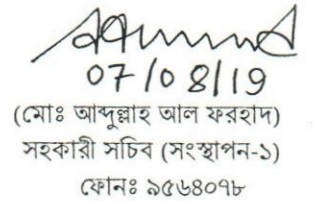 07/08/19
(মোঃ আব্দুল্লাহ আল ফরহাদ)
সহকারী সচিব (সংস্থাপন-১)
ফোনঃ ৯৫৬৪০৭৮